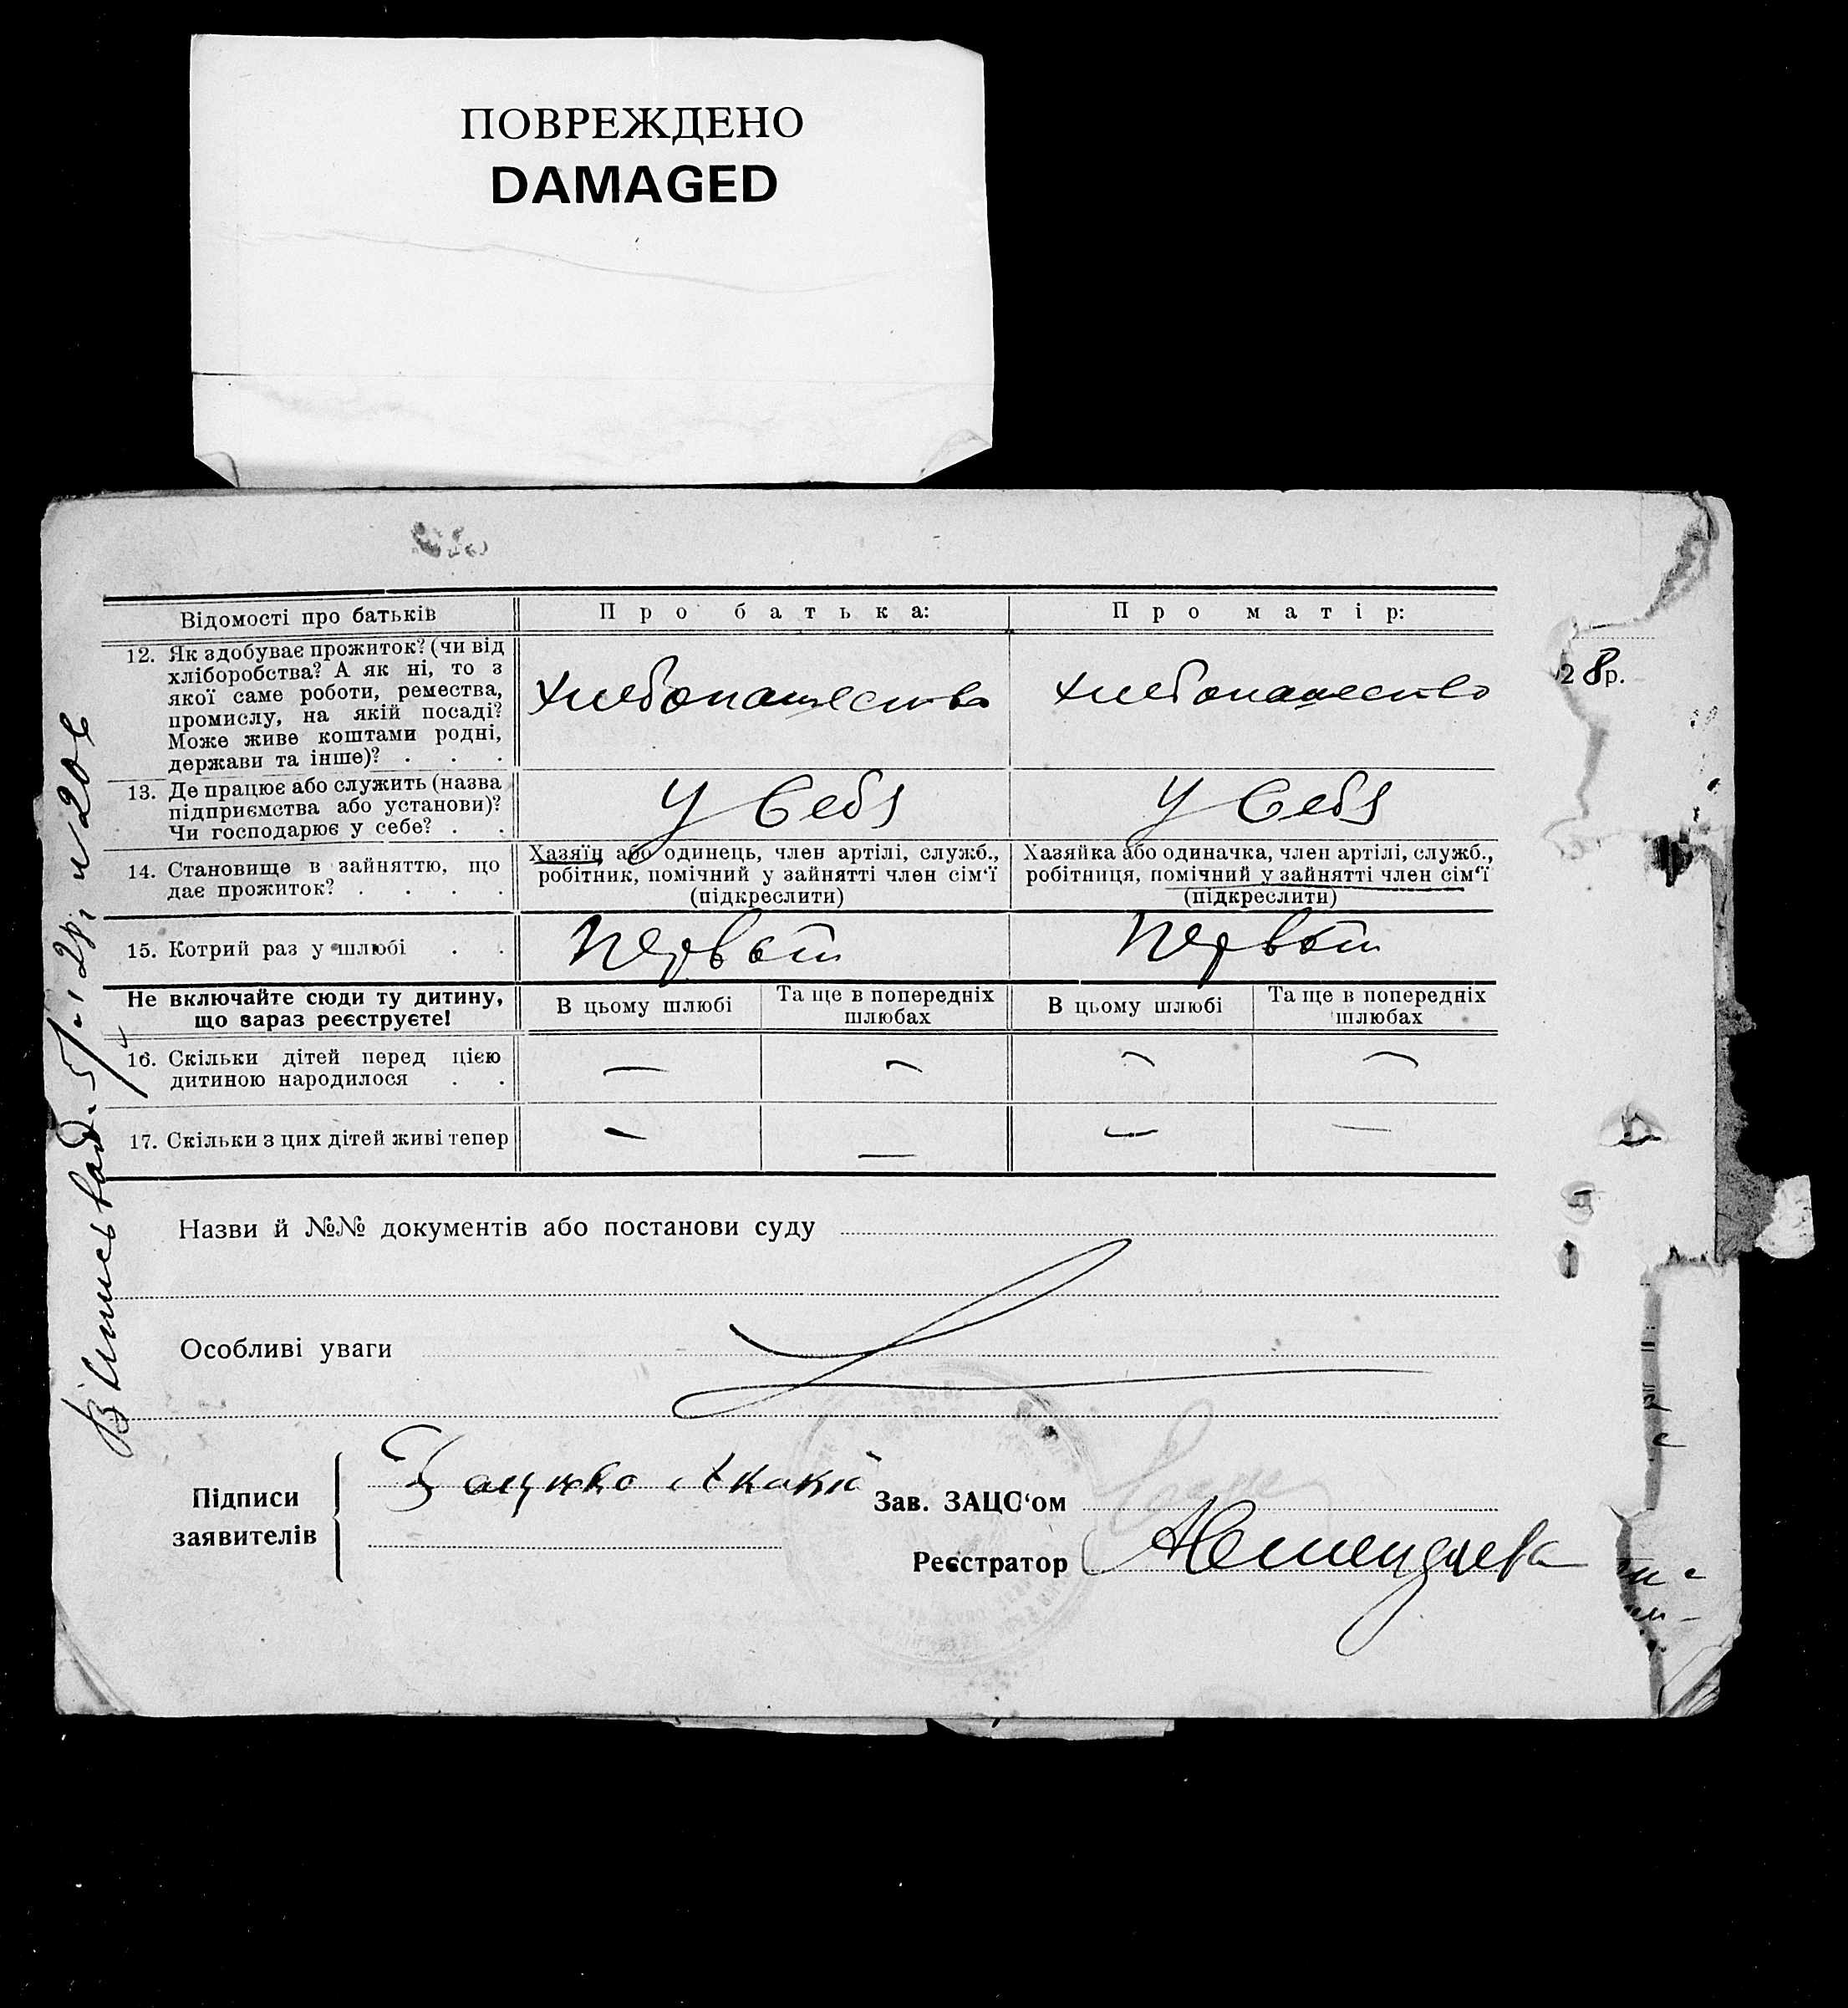 ПОВРЕЖДЕНО
DAMAGED
Відомості про батьків
Про батька:
Про матір:
12. Як здобуває прожиток? (чи від
хліборобства? А як ні, то з
якої саме роботи, ремества,
промислу, на якій посаді?
Може живе коштами родні,
держави та інше)? . . .
хлебопашество
хлебопашество
28р.
13. Де працює або служить (назва
підприємства або установи)?
Чи господарює у себе? . .
у себя
у себя
14. Становище в зайняттю, що
дає прожиток? . . . .
Хазяїн або одинець, член артілі, служб.,
робітник, помічний у зайнятті член сім‘ї
(підкреслити)
Хазяйка або одиначка, член артілі, служб.,
робітниця, помічний у зайнятті член сім‘ї
(підкреслити)
15. Котрий раз у шлюбі . .
первый
первый
Не включайте сюди ту дитину,
що зараз реєструєте!
В цьому шлюбі
Та ще в попередніх
шлюбах
В цьому шлюбі
Та ще в попередніх
шлюбах
16. Скільки дітей перед цією
дитиною народилося . .
— — — —
17. Скільки з цих дітей живі тепер
— — — —
Назви й №№ документів або постанови суду
Особливі уваги
Підписи
заявителів
Акакий
Зав. ЗАЦС‘ом
Реєстратор